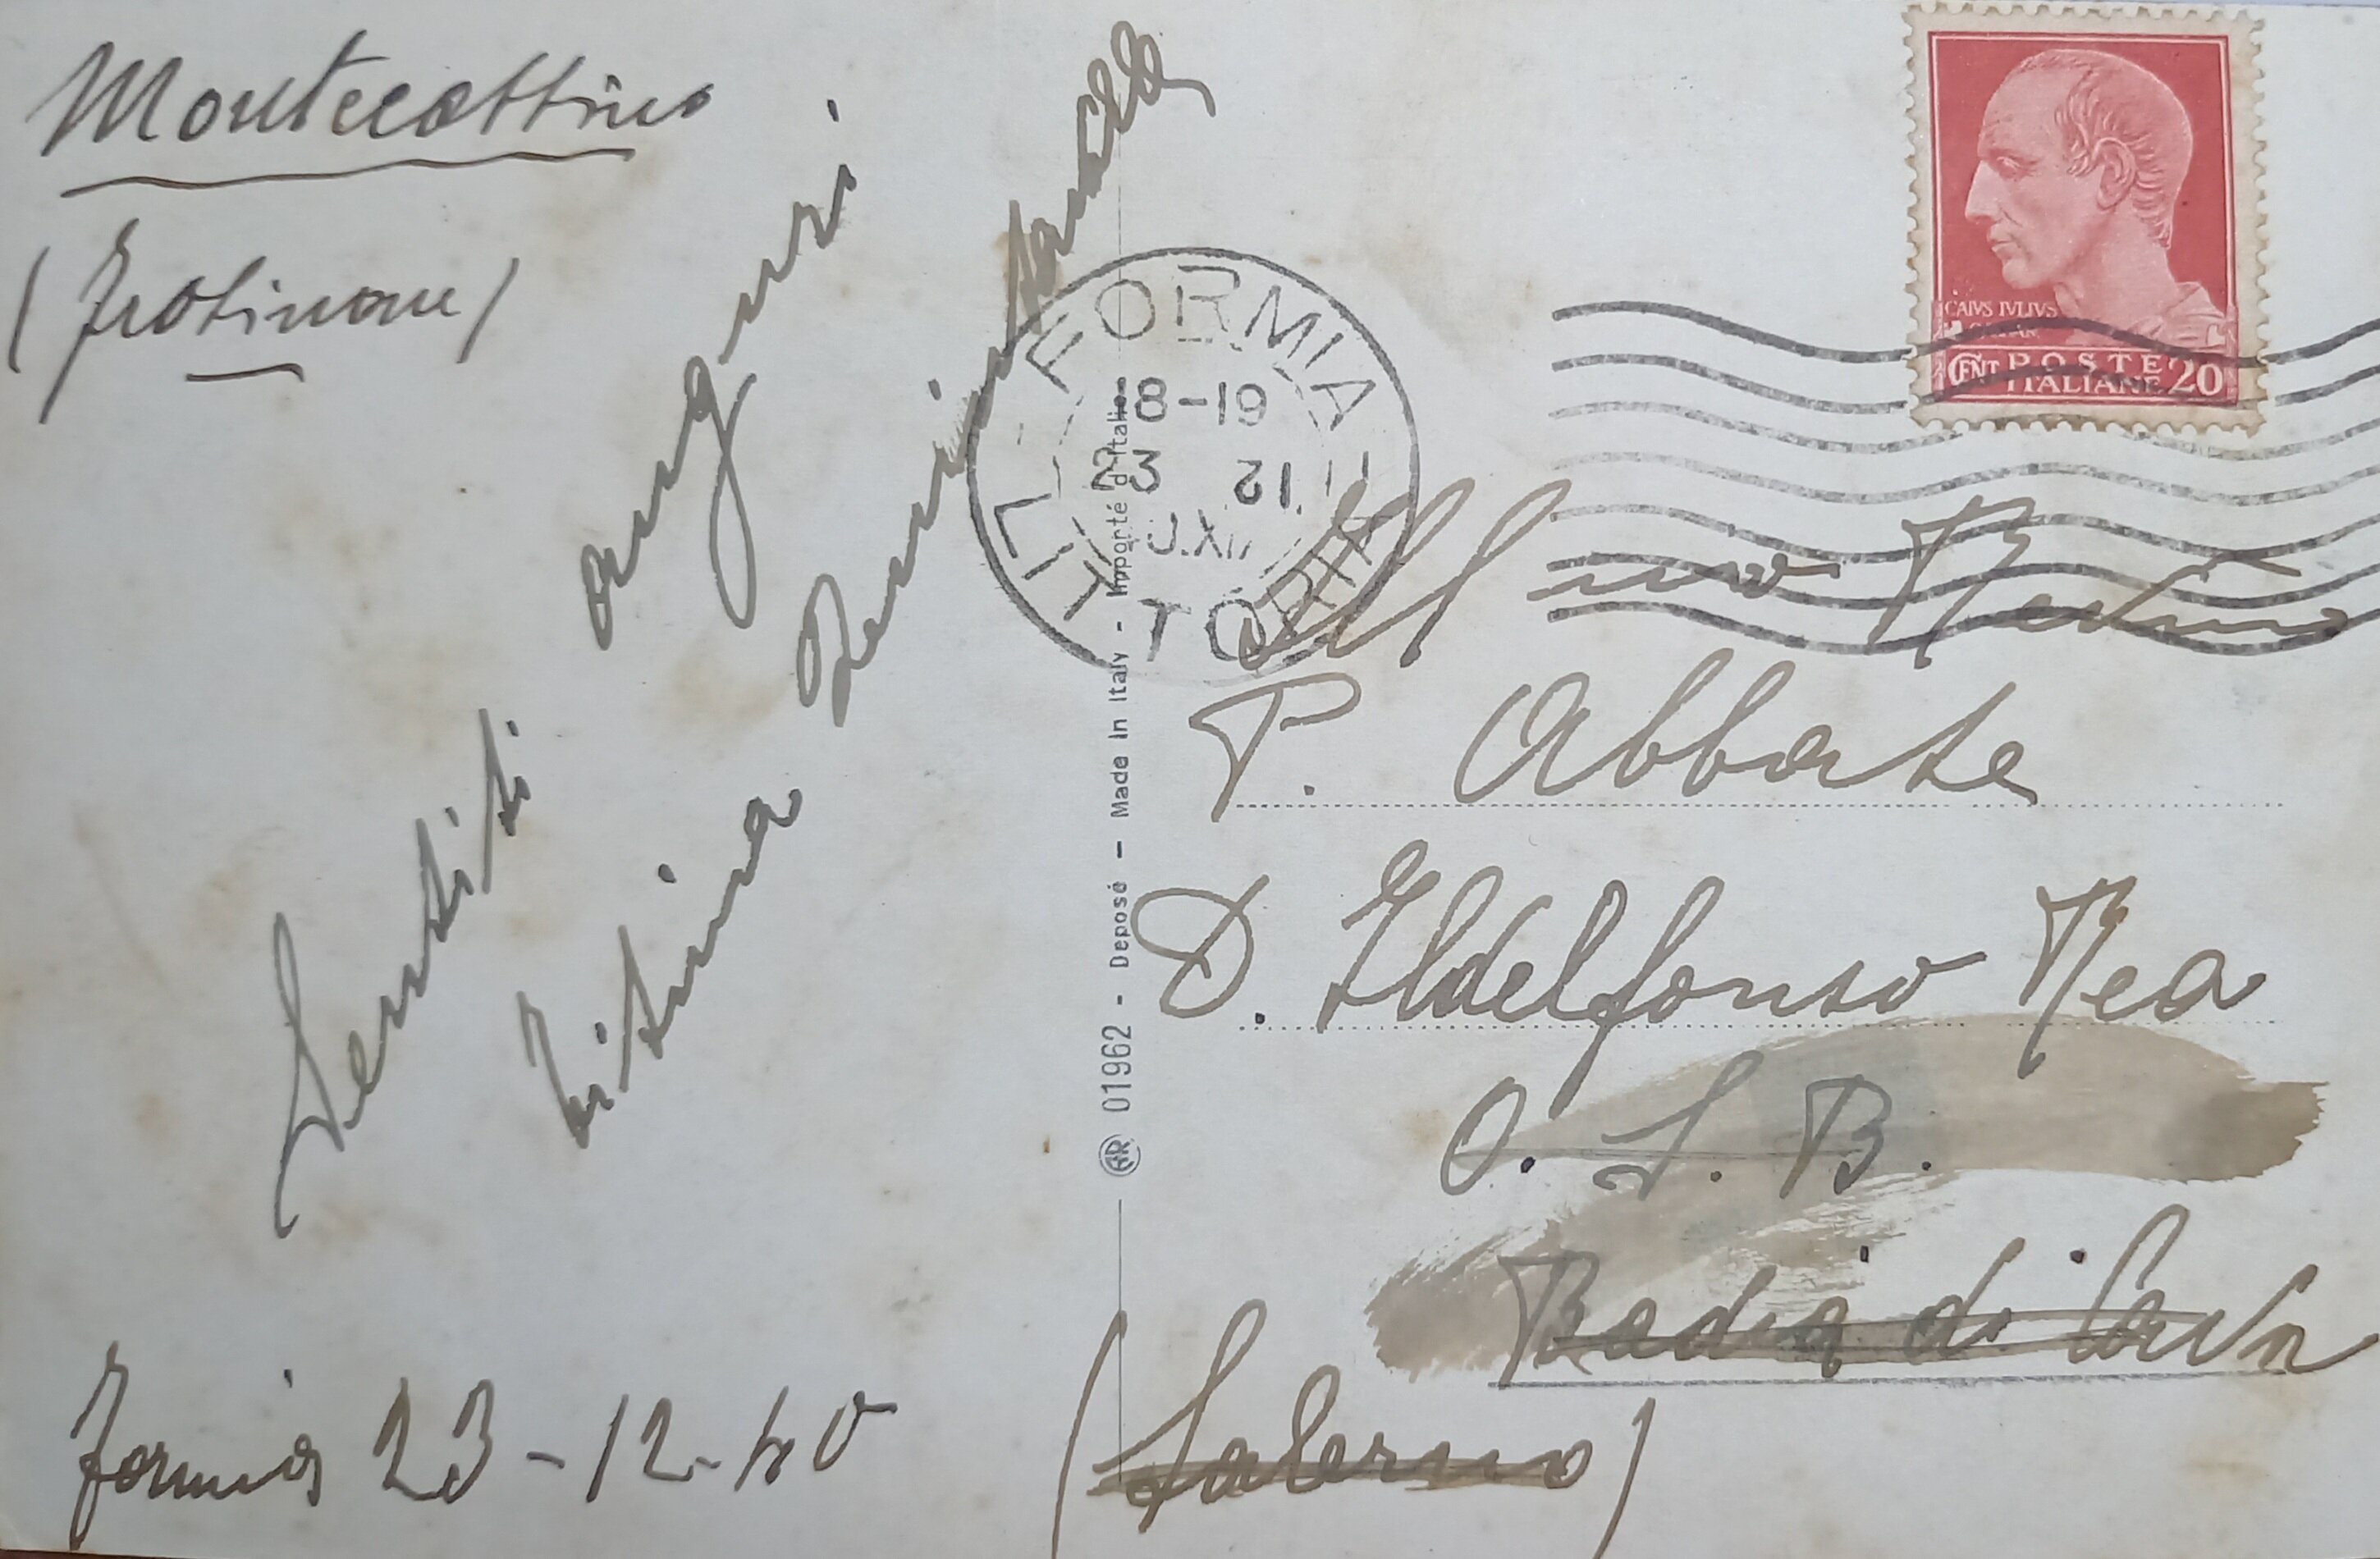 Montecassino
(Frosinone)
Sentiti auguri
Titina
Formia 23-12-40
FORMIA
LITTORIA
8-19
23 12
01962 - Deposé - Made in Italy - Importé d'Italie
CAIVS IVLIVS
CAESAR
CENT POSTE ITALIANE 20
All
P. Abbate
D. Ildelfonso Rea
O. S. B.
Badia di Cava
(Salerno)